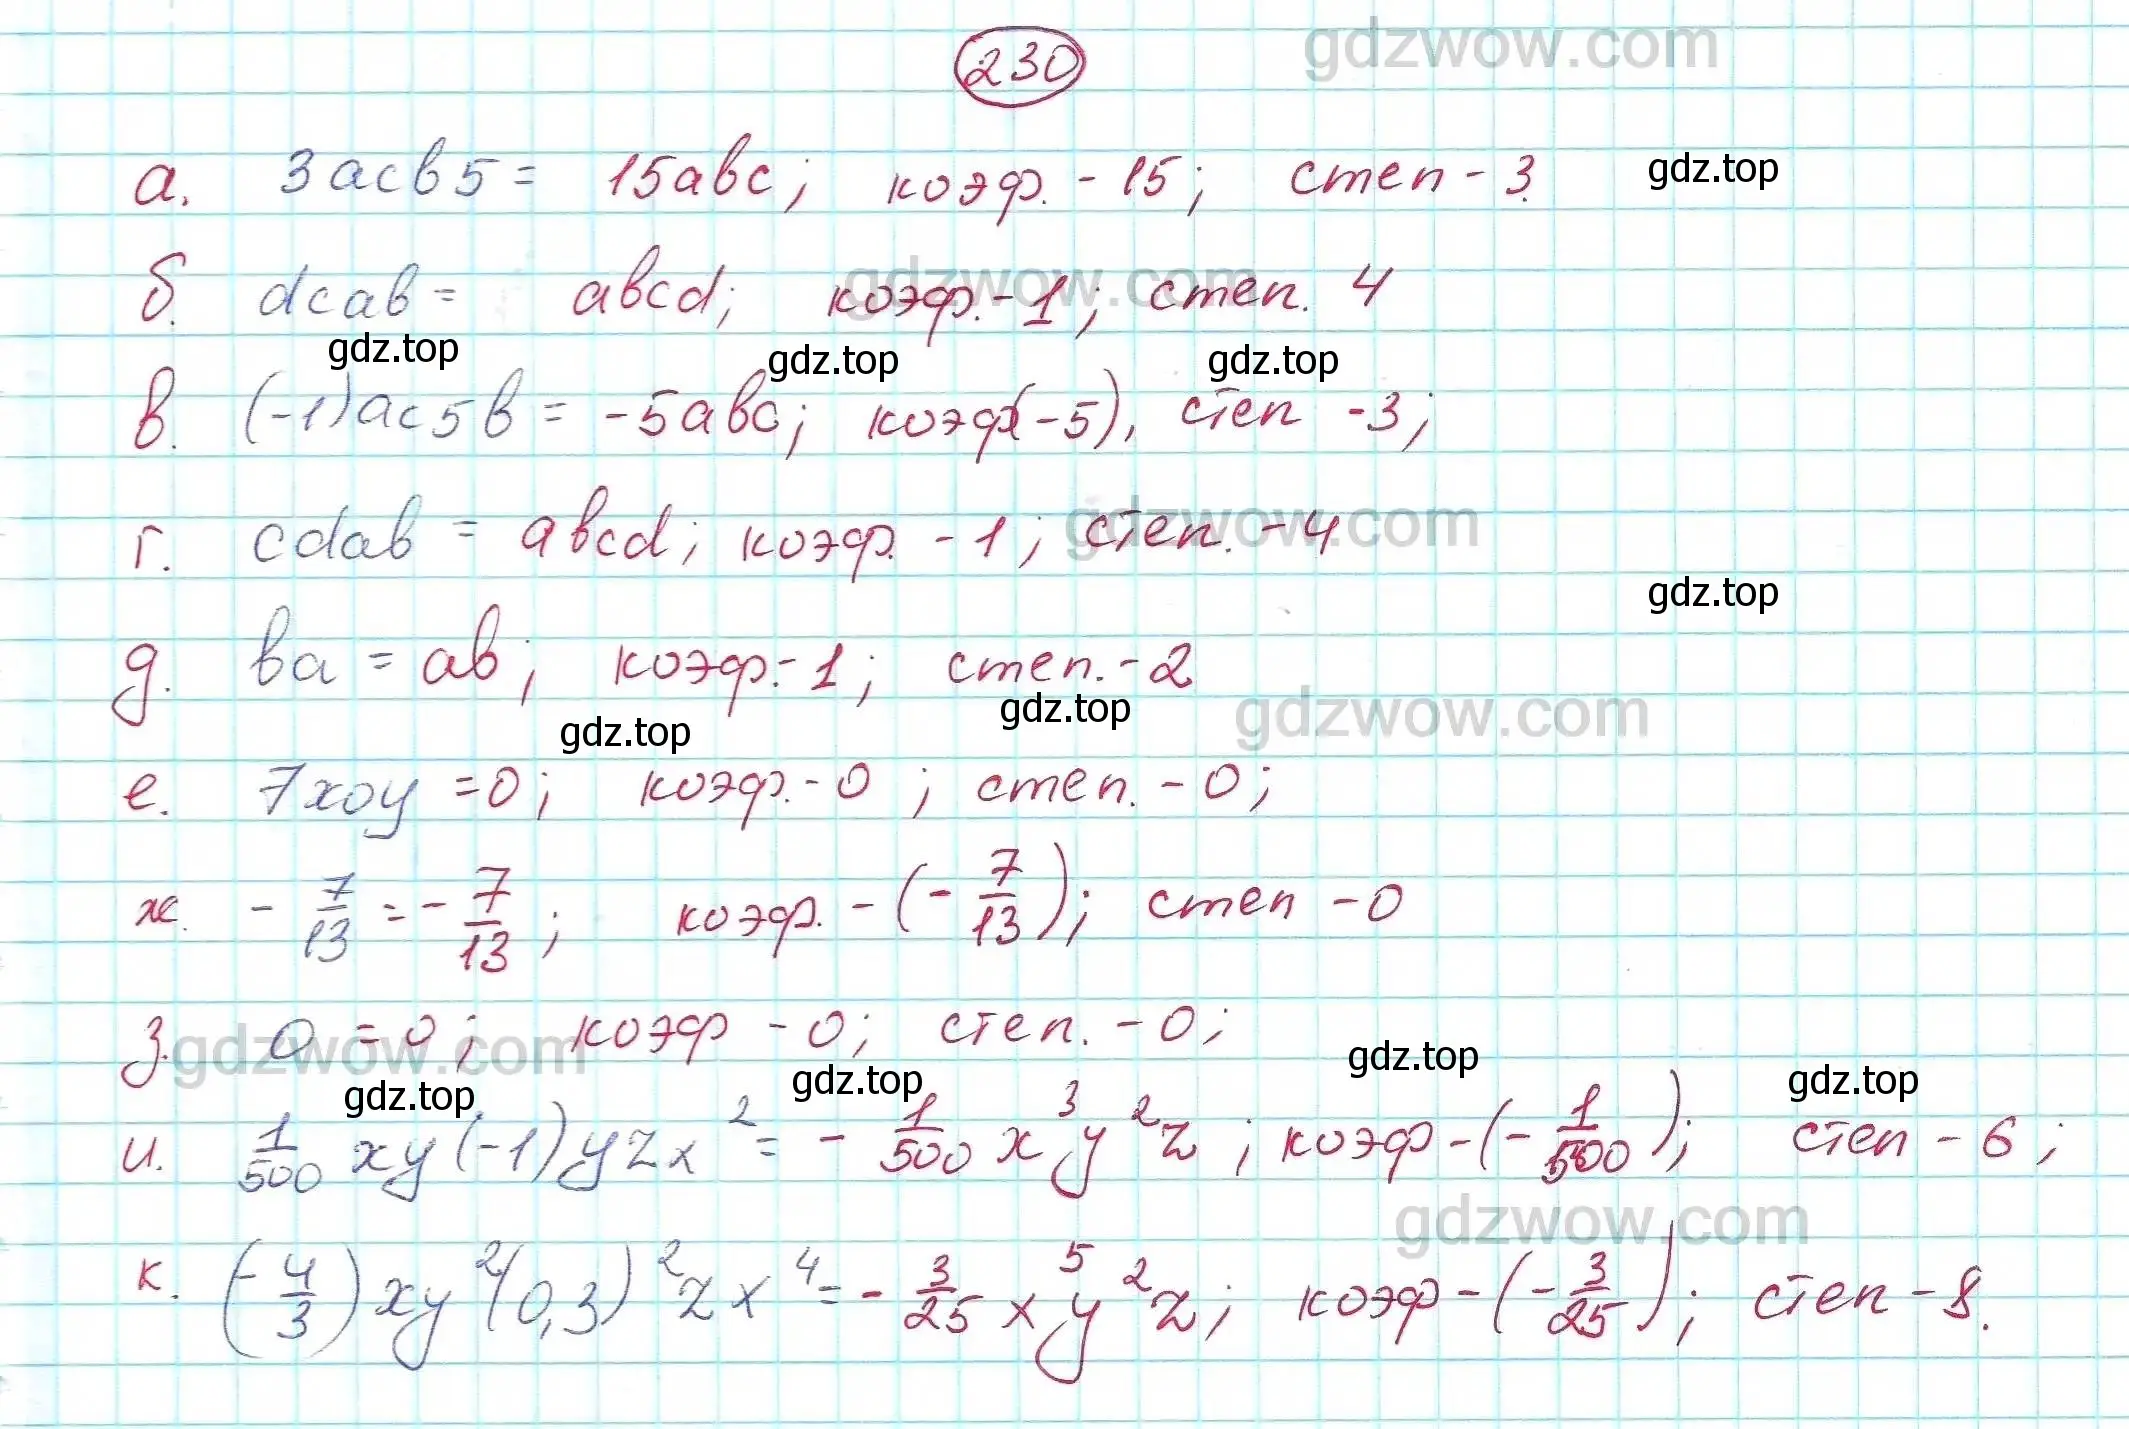 230
gdzwow.com
а. 3acb5 = 15abc; коэф. - 15; степ - 3.
gdz.top
б. dcab = abcd; коэф. - 1; степ. 4
gdzwow.com
gdz.top gdz.top gdz.top
в. (-1)ac5b = -5abc; коэф(-5), степ -3;
г. cdab = abcd; коэф. - 1; степ. - 4
gdzwow.com
gdz.top
д. ba = ab; коэф. - 1; степ. - 2
gdz.top gdz.top gdzwow.com
е. 7x0y = 0; коэф. - 0; степ. - 0;
ж. - 7/13 = - 7/13; коэф. - (- 7/13); степ - 0
з. 0 = 0; коэф - 0; степ. - 0;
gdzwow.com
gdz.top gdz.top gdz.top gdz.top
и. 1/500 xy(-1)yzx² = - 1/500 x³y²z; коэф - (- 1/500); степ - 6;
gdzwow.com
к. (- 4/3)xy²(0,3)²zx⁴ = - 3/25 x⁵y²z; коэф - (- 3/25); степ - 8.